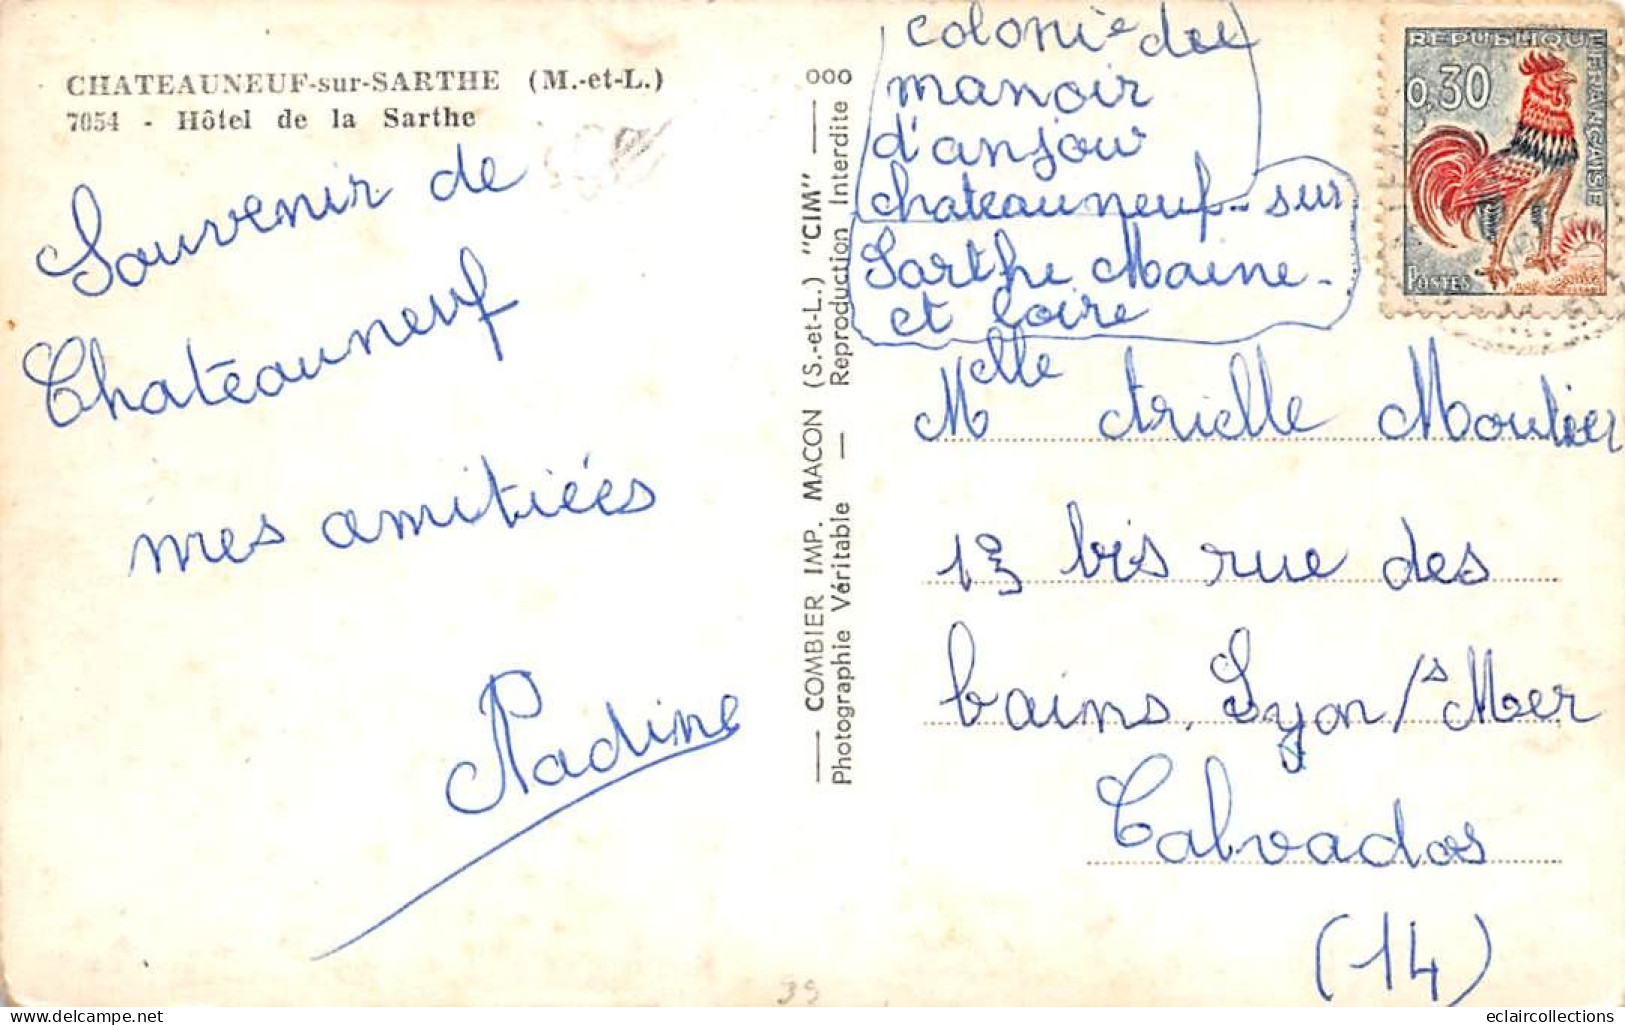 CHATEAUNEUF-sur-SARTHE (M.-et-L.)
7054 - Hôtel de la Sarthe
Souvenir de
Chateauneuf
mes amitiées
Nadine
COMBIER IMP. MACON (S.-et-L.) "CIM"
Photographie Véritable — Reproduction Interdite
colonie du
manoir
d'anjou
chateauneuf-sur
Sarthe Maine-
et Loire
REPUBLIQUE FRANÇAISE
0,30
POSTES
Melle Arielle Moulier
13 bis rue des
bains, Lyon/s Mer
Calvados
(14)
39
eclaircollections